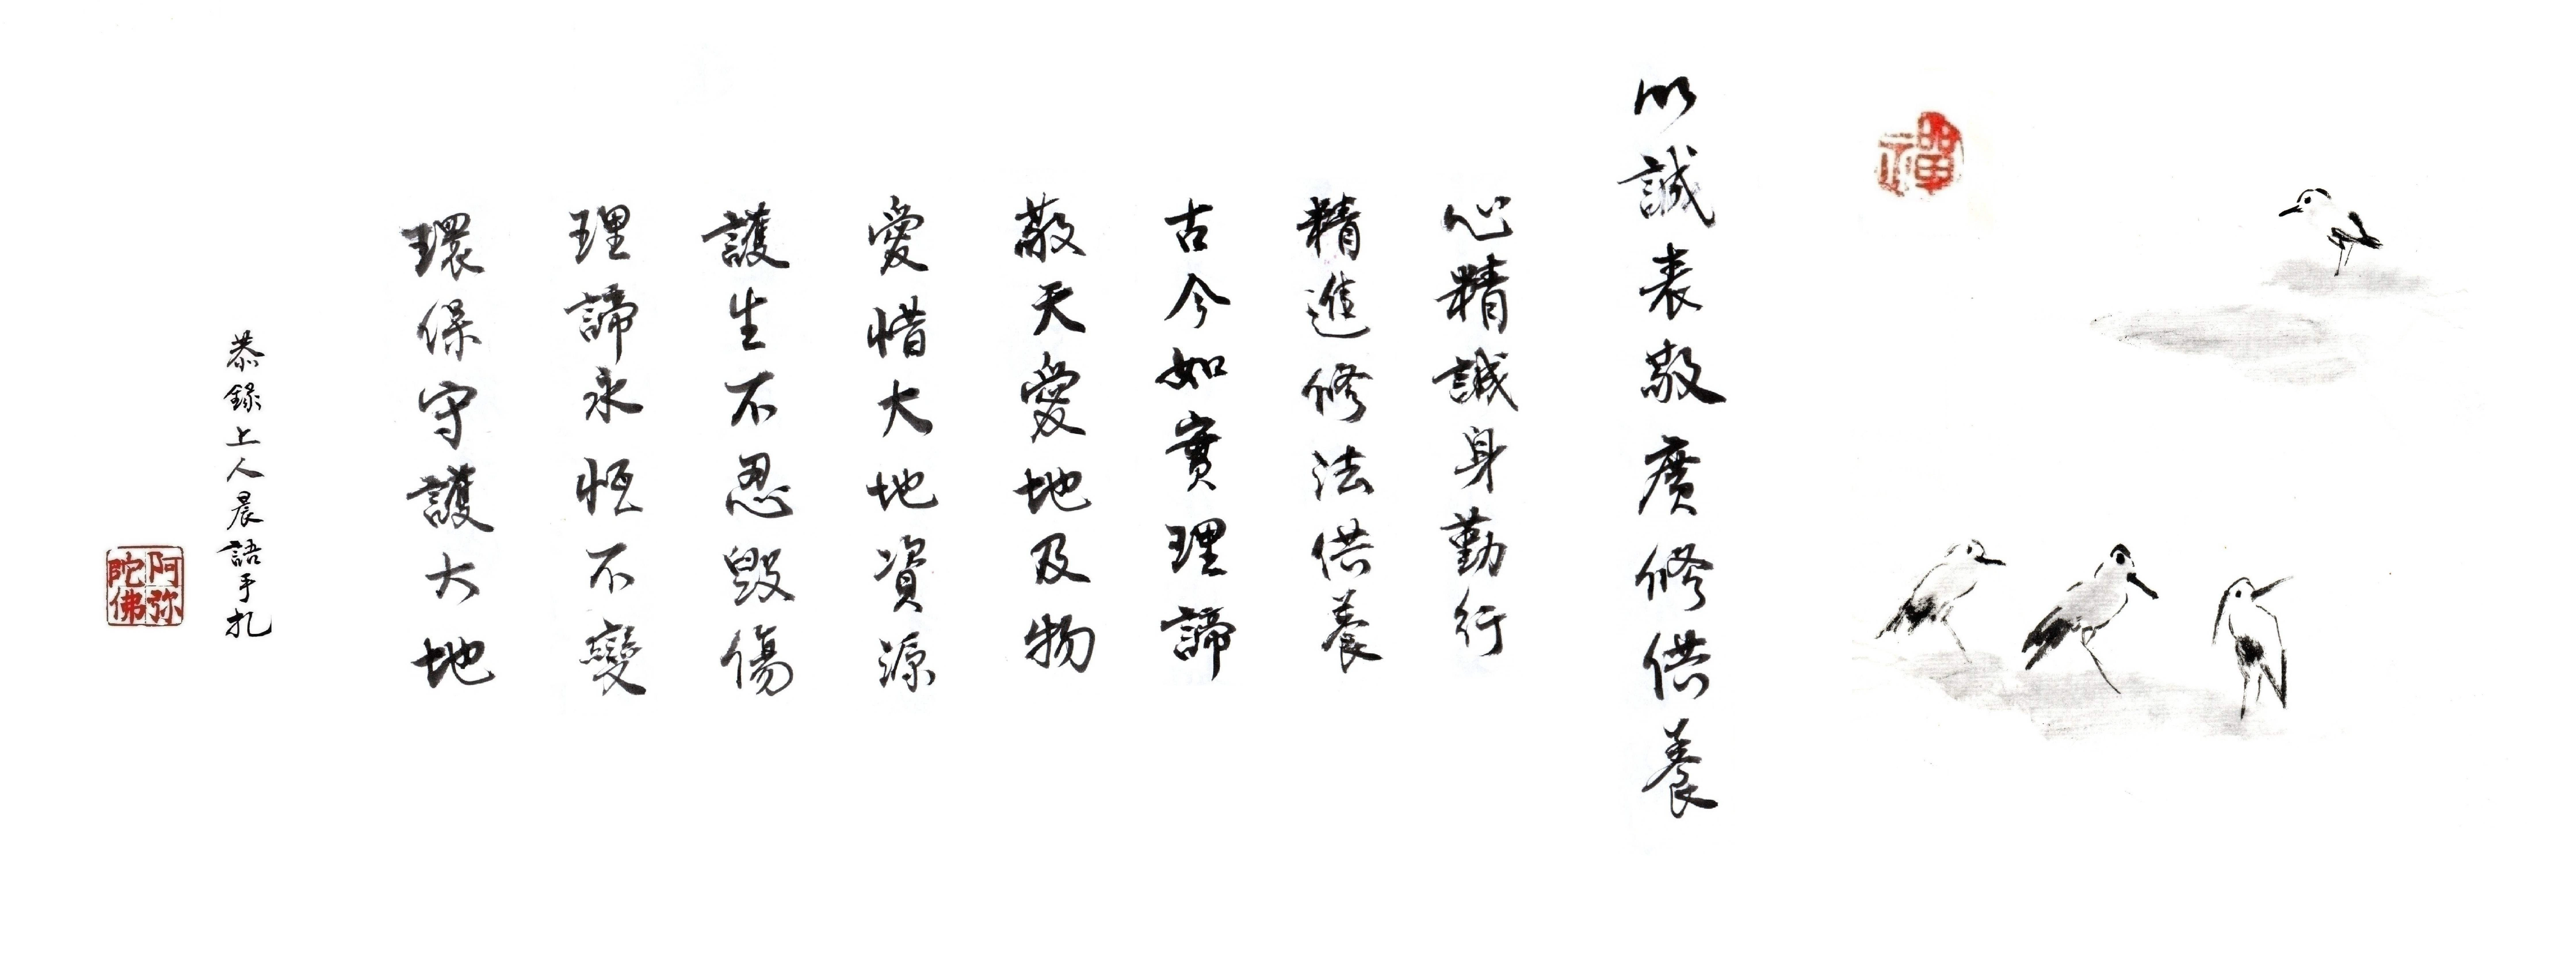 禪
以誠表敬廣修供養
心精誠身勤行
精進修法供養
古今如實理諦
敬天愛地及物
愛惜大地資源
護生不忍毀傷
理諦永恒不變
環保守護大地
恭錄上人晨語手扎
阿弥
陀佛